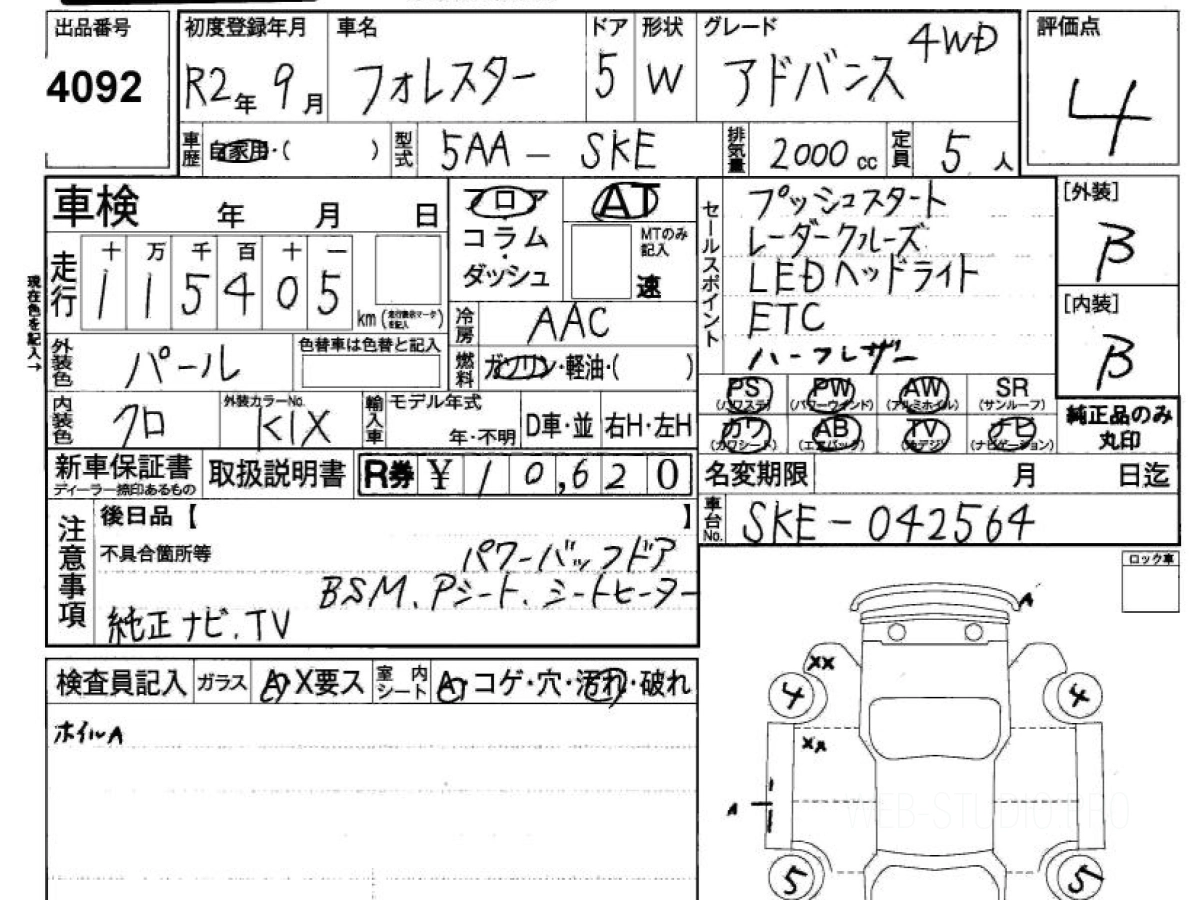 出品番号
4092
初度登録年月
R2年 9月
車名
フォレスター
ドア
5
形状
W
グレード
アドバンス 4WD
評価点
4
車歴 自家用・( )
型式 5AA - SKE
排気量 2000 cc
定員 5 人
車検 年 月 日
走行
十 万 千 百 十 一
1 1 5 4 0 5
km (走行表示マークを記入)
現在色を記入→
フロア
コラム
・
ダッシュ
AT
MTのみ記入
速
冷房 AAC
燃料 ガソリン・軽油・( )
セールスポイント
プッシュスタート
レーダークルーズ
LEDヘッドライト
ETC
ハーフレザー
[外装]
B
[内装]
B
外装色 パール
色替車は色替と記入
内装色 クロ
外装カラーNo.
K1X
輸入車
モデル年式
年・不明
D車・並
右H・左H
PS (パワステ)
PW (パワーウィンド)
AW (アルミホイル)
SR (サンルーフ)
カワ (カワシート)
AB (エアバッグ)
TV (地デジ)
ナビ (ナビゲーション)
純正品のみ丸印
新車保証書
ディーラー捺印あるもの
取扱説明書
R券 ¥ 10,620
名変期限 月 日迄
車台No. SKE-042564
注意事項
後日品【 】
不具合箇所等
パワーバックドア
BSM、Pシート、シートヒーター
純正ナビ.TV
ロック車
検査員記入
ガラス A・X要ス
室内シート A・コゲ・穴・汚れ・破れ
ホイルA
A
XX
4
4
XA
A
5
5
WEB-STUDIO.PRO